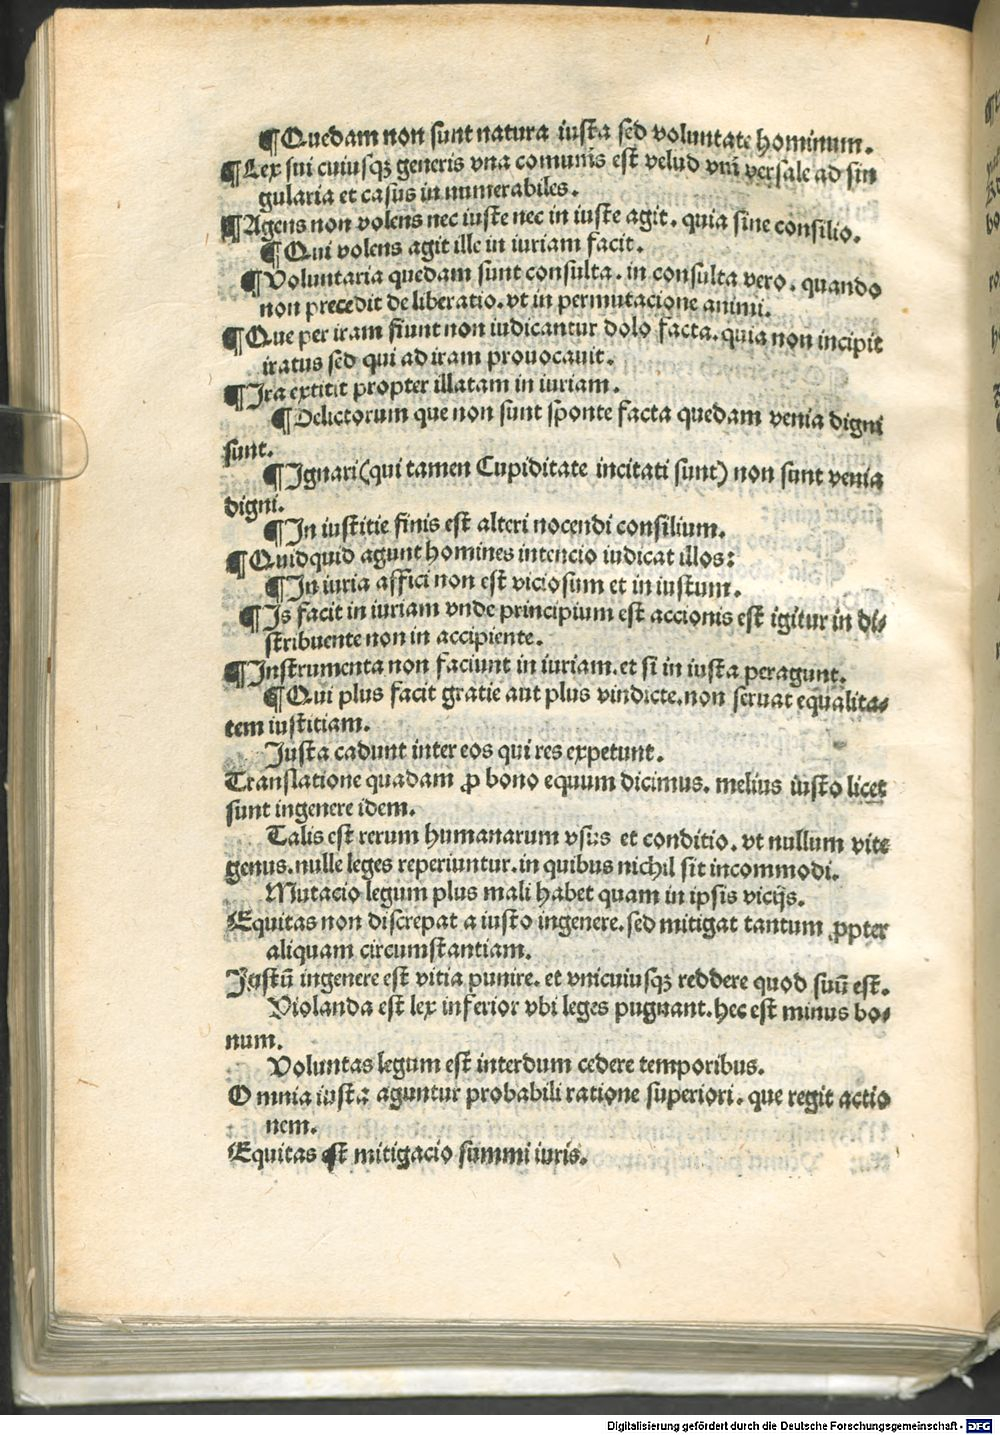 ¶Quedam non sunt natura iusta sed voluntate hominum.
¶Lex sui cuiusqꝫ generis vna comunis est velud vnī versale ad sin
gularia et casus in numerabiles.
¶Agens non volens nec iuste nec in iuste agit. quia sine consilio.
¶Qui volens agit ille in iuriam facit.
¶Voluntaria quedam sunt consulta. in consulta vero. quando
non precedit de liberatio. vt in permutacione animi.
¶Que per iram fiunt non iudicantur dolo facta. quia non incipit
iratus sed qui ad iram prouocauit.
¶Ira extitit propter illatam in iuriam.
¶Delictorum que non sunt sponte facta quedam venia digni
sunt.
¶Ignari(qui tamen Cupiditate incitati sunt) non sunt venia
digni.
¶In iustitie finis est alteri nocendi consilium.
¶Quidquid agunt homines intencio iudicat illos:
¶In iuria affici non est viciosum et in iustum.
¶Is facit in iuriam vnde principium est accionis est igitur in di⸗
stribuente non in accipiente.
¶Instrumenta non faciunt in iuriam. et si in iusta peragunt.
¶Qui plus facit gratie aut plus vindicte. non seruat equalita⸗
tem iustitiam.
Iusta cadunt inter eos qui res expetunt.
Translatione quadam ꝓ bono equum dicimus. melius iusto licet
sunt ingenere idem.
Talis est rerum humanarum vsus et conditio. vt nullum vite
genus. nulle leges reperiuntur. in quibus nichil sit incommodi.
Mutacio legum plus mali habet quam in ipsis vicijs.
Equitas non discrepat a iusto ingenere. sed mitigat tantum ꝓpter
aliquam circumstantiam.
Iustū ingenere est vitia punire. et vnicuiusqꝫ reddere quod suū est.
Violanda est lex inferior vbi leges pugnant. hec est minus bo⸗
num.
Voluntas legum est interdum cedere temporibus.
O mnia iusta aguntur probabili ratione superiori. que regit actio
nem.
Equitas est mitigacio summi iuris.
Digitalisierung gefördert durch die Deutsche Forschungsgemeinschaft - DFG